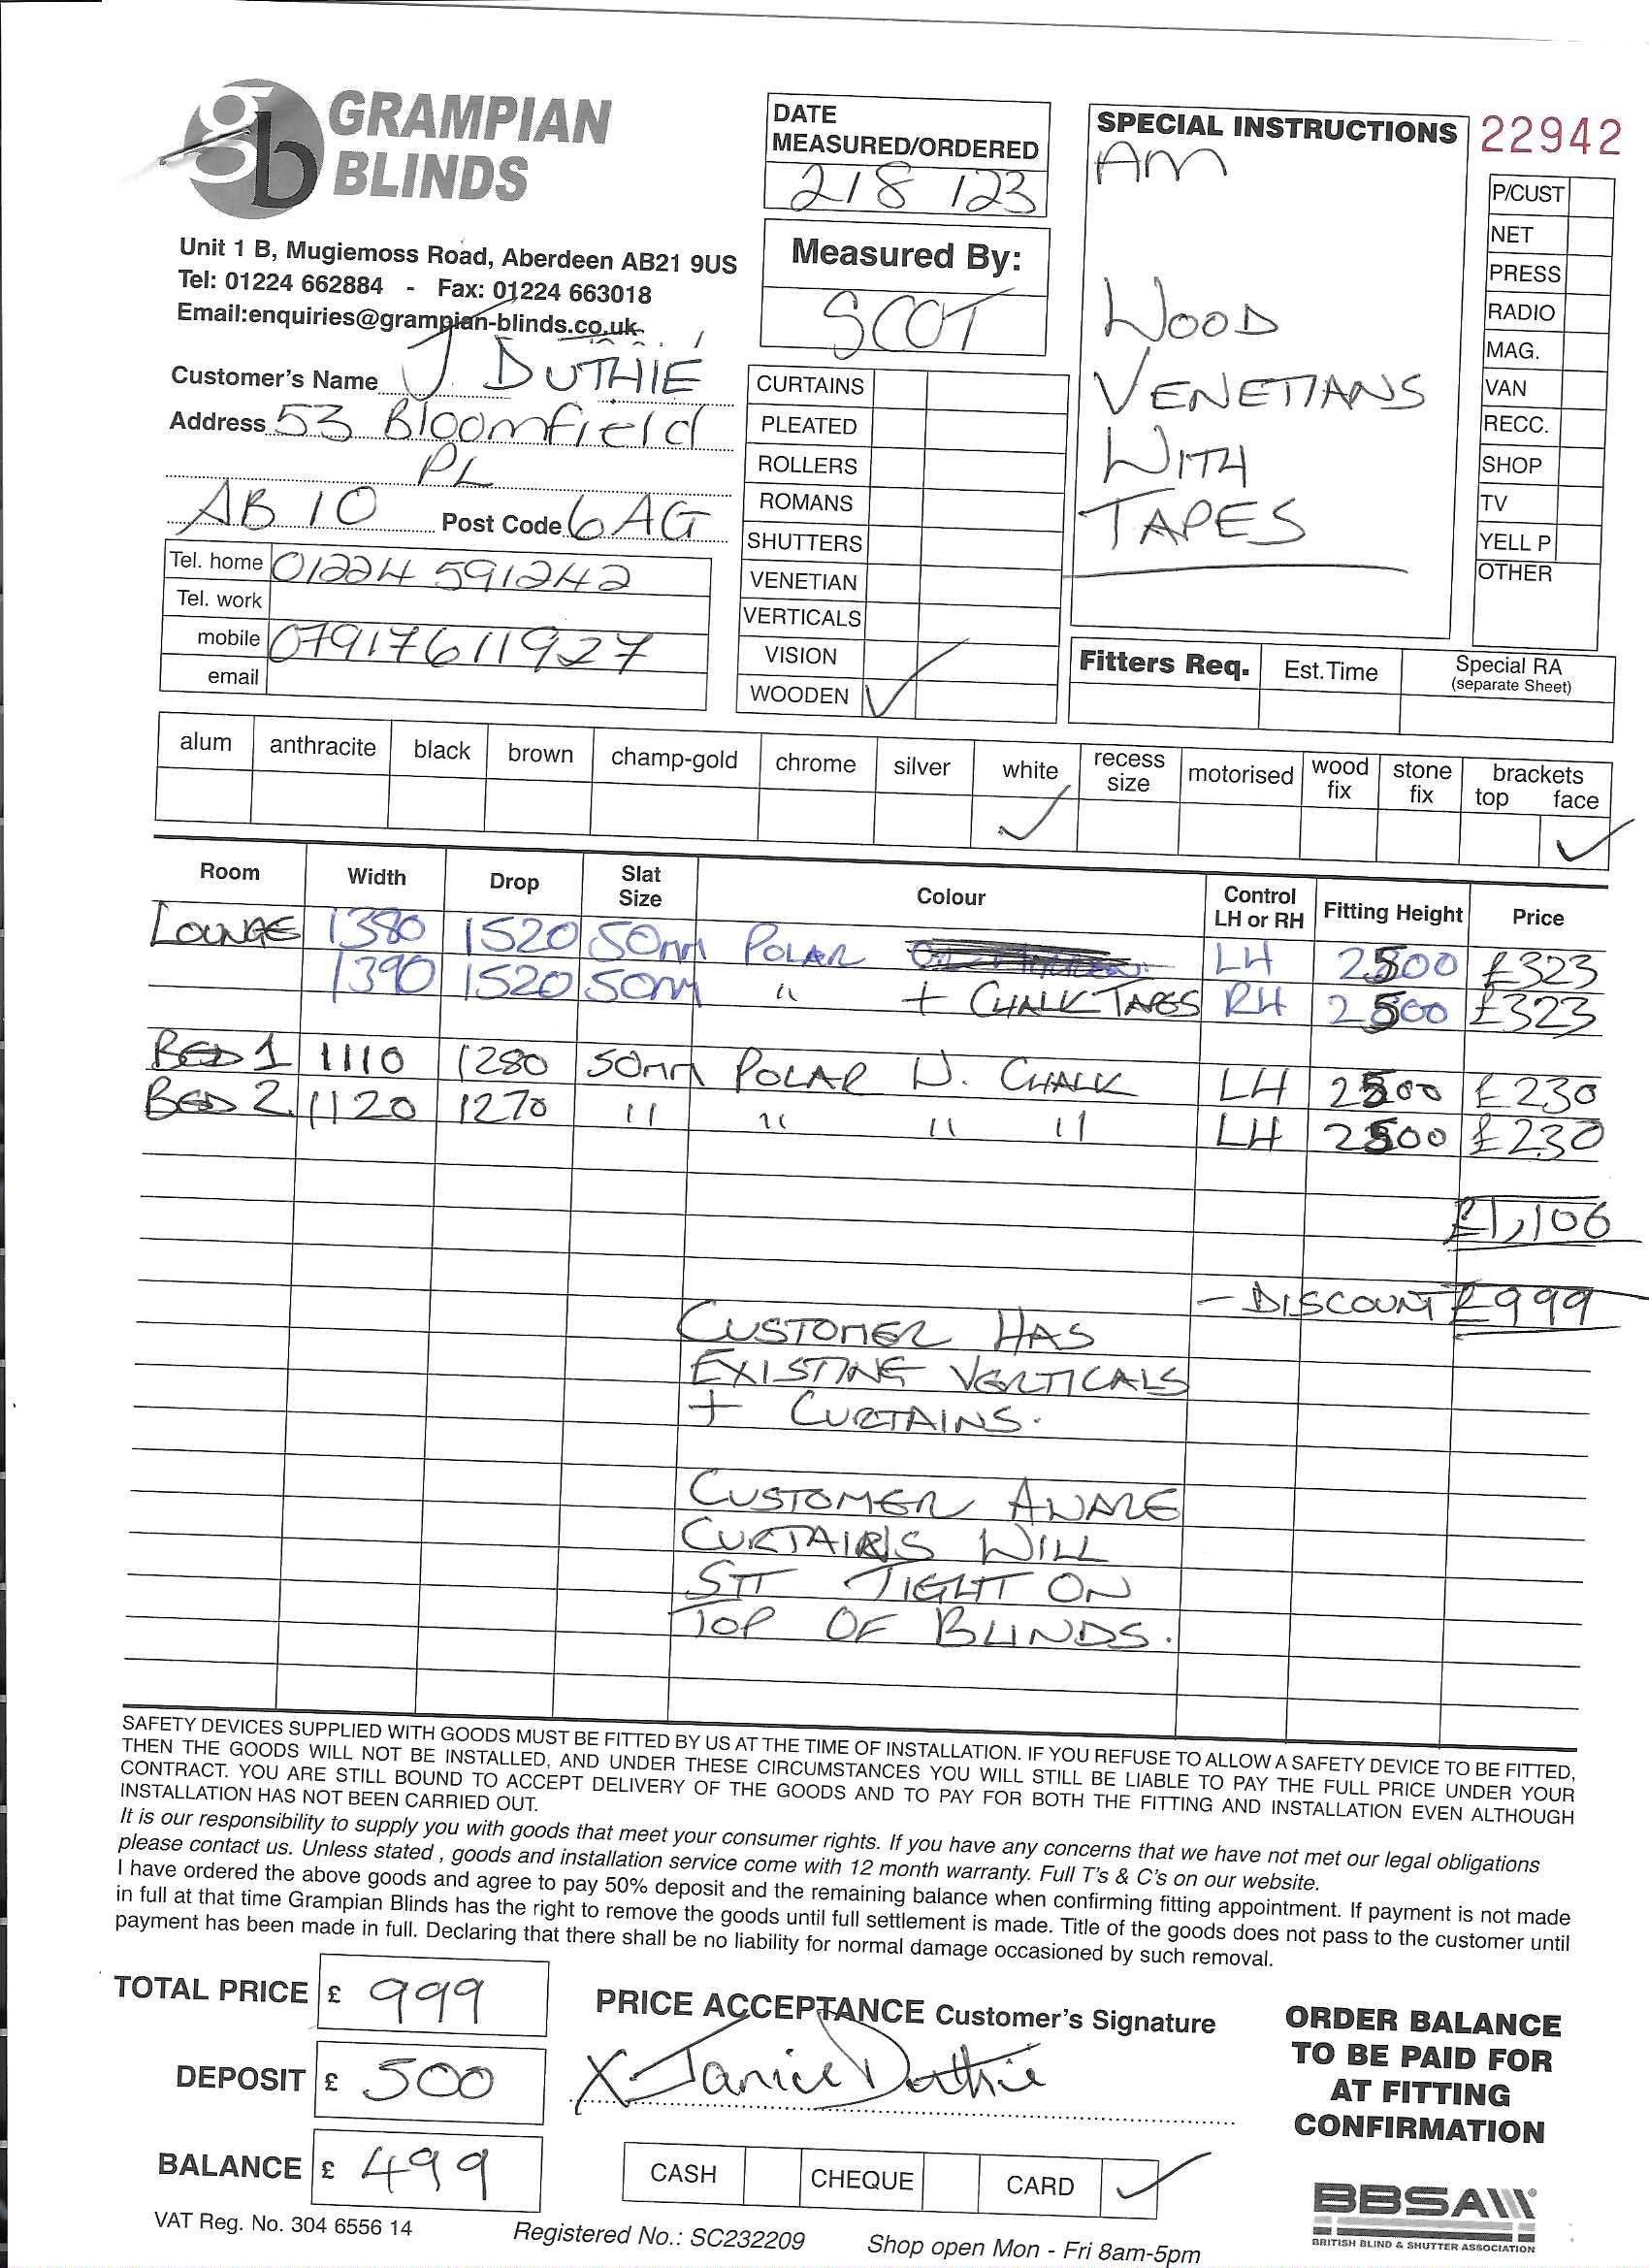 gb GRAMPIAN
BLINDS
Unit 1 B, Mugiemoss Road, Aberdeen AB21 9US
Tel: 01224 662884 - Fax: 01224 663018
Email:enquiries@grampian-blinds.co.uk
Customer's Name J. DUTHIE
Address 53 Bloomfield
PL
AB 10 Post Code 6AG
Tel. home 01224 591242
Tel. work
mobile 07917611927
email
DATE
MEASURED/ORDERED
2/8/23
Measured By:
SCOT
CURTAINS
PLEATED
ROLLERS
ROMANS
SHUTTERS
VENETIAN
VERTICALS
VISION
WOODEN ✓
SPECIAL INSTRUCTIONS
AM
WOOD
VENETIANS
WITH
TAPES
22942
P/CUST
NET
PRESS
RADIO
MAG.
VAN
RECC.
SHOP
TV
YELL P
OTHER
Fitters Req. Est.Time Special RA
(separate Sheet)
alum anthracite black brown champ-gold chrome silver white recess size motorised wood fix stone fix brackets top face
✓ ✓
Room Width Drop Slat Size Colour Control LH or RH Fitting Height Price
LOUNGE 1380 1520 50mm POLAR LH 2500 £323
1390 1520 50mm " + CHALK TAPES RH 2500 £323
BED 1 1110 1280 50mm POLAR W. CHALK LH 2500 £230
BED 2 1120 1270 " " " " LH 2500 £230
£1,106
- DISCOUNT £999
CUSTOMER HAS
EXISTING VERTICALS
+ CURTAINS.
CUSTOMER AWARE
CURTAINS WILL
SIT TIGHT ON
TOP OF BLINDS.
SAFETY DEVICES SUPPLIED WITH GOODS MUST BE FITTED BY US AT THE TIME OF INSTALLATION. IF YOU REFUSE TO ALLOW A SAFETY DEVICE TO BE FITTED,
THEN THE GOODS WILL NOT BE INSTALLED, AND UNDER THESE CIRCUMSTANCES YOU WILL STILL BE LIABLE TO PAY THE FULL PRICE UNDER YOUR
CONTRACT. YOU ARE STILL BOUND TO ACCEPT DELIVERY OF THE GOODS AND TO PAY FOR BOTH THE FITTING AND INSTALLATION EVEN ALTHOUGH
INSTALLATION HAS NOT BEEN CARRIED OUT.
It is our responsibility to supply you with goods that meet your consumer rights. If you have any concerns that we have not met our legal obligations
please contact us. Unless stated , goods and installation service come with 12 month warranty. Full T's & C's on our website.
I have ordered the above goods and agree to pay 50% deposit and the remaining balance when confirming fitting appointment. If payment is not made
in full at that time Grampian Blinds has the right to remove the goods until full settlement is made. Title of the goods does not pass to the customer until
payment has been made in full. Declaring that there shall be no liability for normal damage occasioned by such removal.
TOTAL PRICE £ 999
DEPOSIT £ 500
BALANCE £ 499
PRICE ACCEPTANCE Customer's Signature
X Janice Duthie
CASH CHEQUE CARD ✓
ORDER BALANCE
TO BE PAID FOR
AT FITTING
CONFIRMATION
BBSA
BRITISH BLIND & SHUTTER ASSOCIATION
VAT Reg. No. 304 6556 14 Registered No.: SC232209 Shop open Mon - Fri 8am-5pm